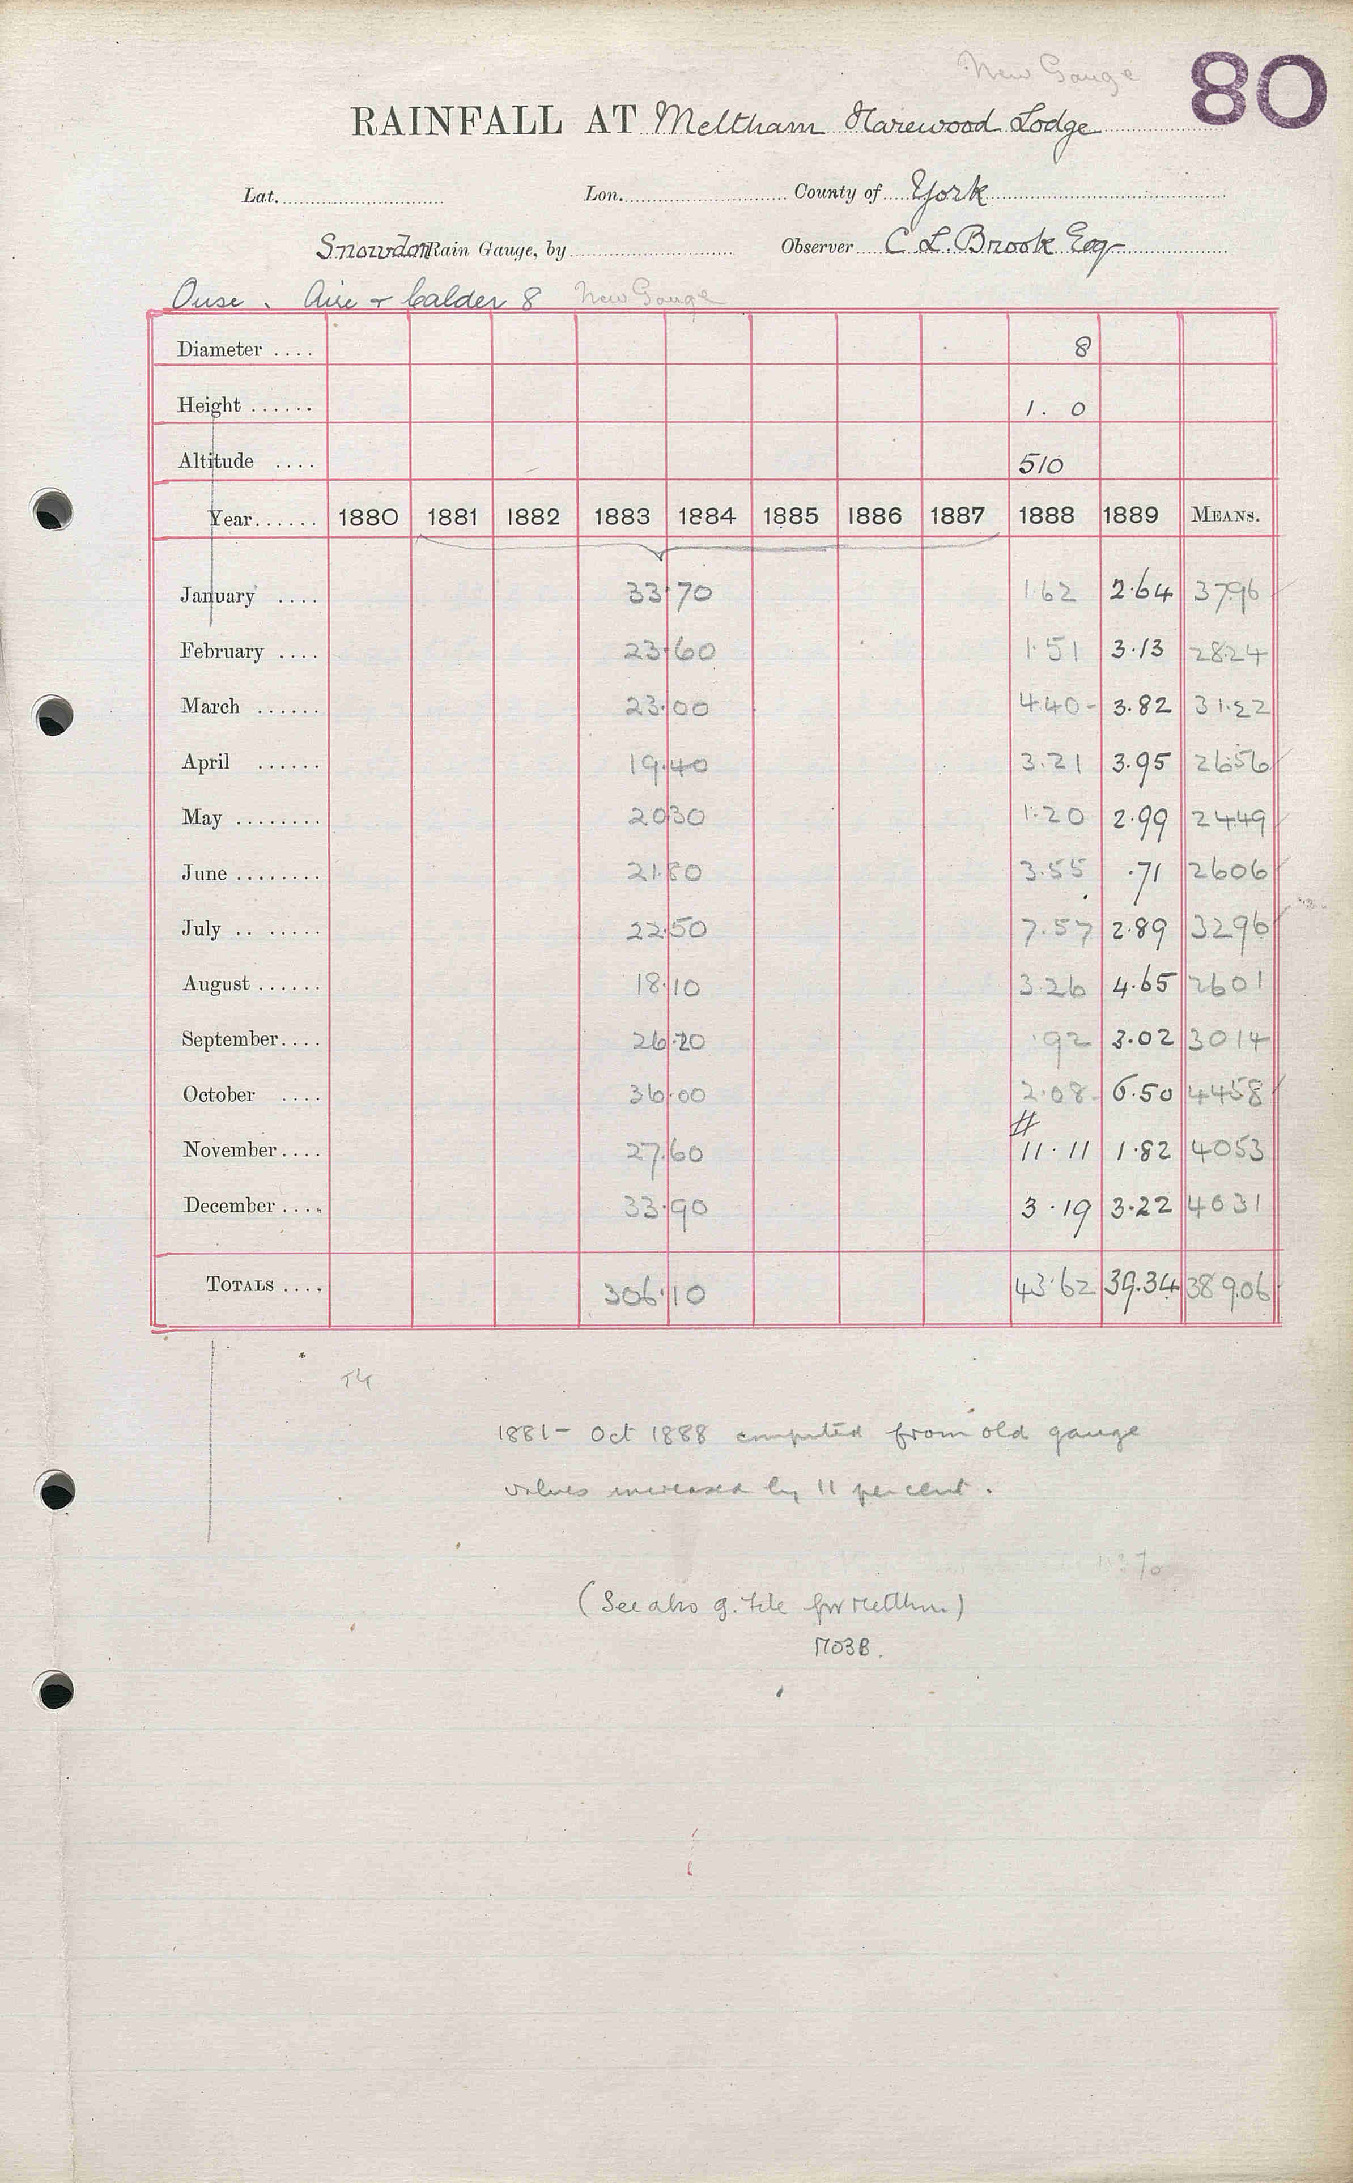 New Gauge
80
RAINFALL AT Meltham Harewood Lodge
Lat. Lon. County of York
Snowdon Rain Gauge, by Observer C. L. Brook Esq
Ouse. Aire + Calder 8 New Gauge
Diameter .... 8
Height ...... 1. 0
Altitude .... 510
Year...... 1880 1881 1882 1883 1884 1885 1886 1887 1888 1889 MEANS.
January .... 33.70 1.62 2.64 37.96
February .... 23.60 1.51 3.13 28.24
March ...... 23.00 4.40 3.82 31.22
April ...... 19.40 3.21 3.95 26.56
May ........ 20.30 1.20 2.99 24.49
June ........ 21.80 3.55 .71 26.06
July .. ..... 22.50 7.57 2.89 32.96
August ...... 18.10 3.26 4.65 26.01
September.... 26.20 .92 3.02 30.14
October .... 36.00 2.08 6.50 44.58
#
November.... 27.60 11.11 1.82 40.53
December .... 33.90 3.19 3.22 40.31
TOTALS .... 306.10 43.62 39.34 389.06
1881 - Oct 1888 computed from old gauge
values increased by 11 per cent.
(See also g. file for Meltham)